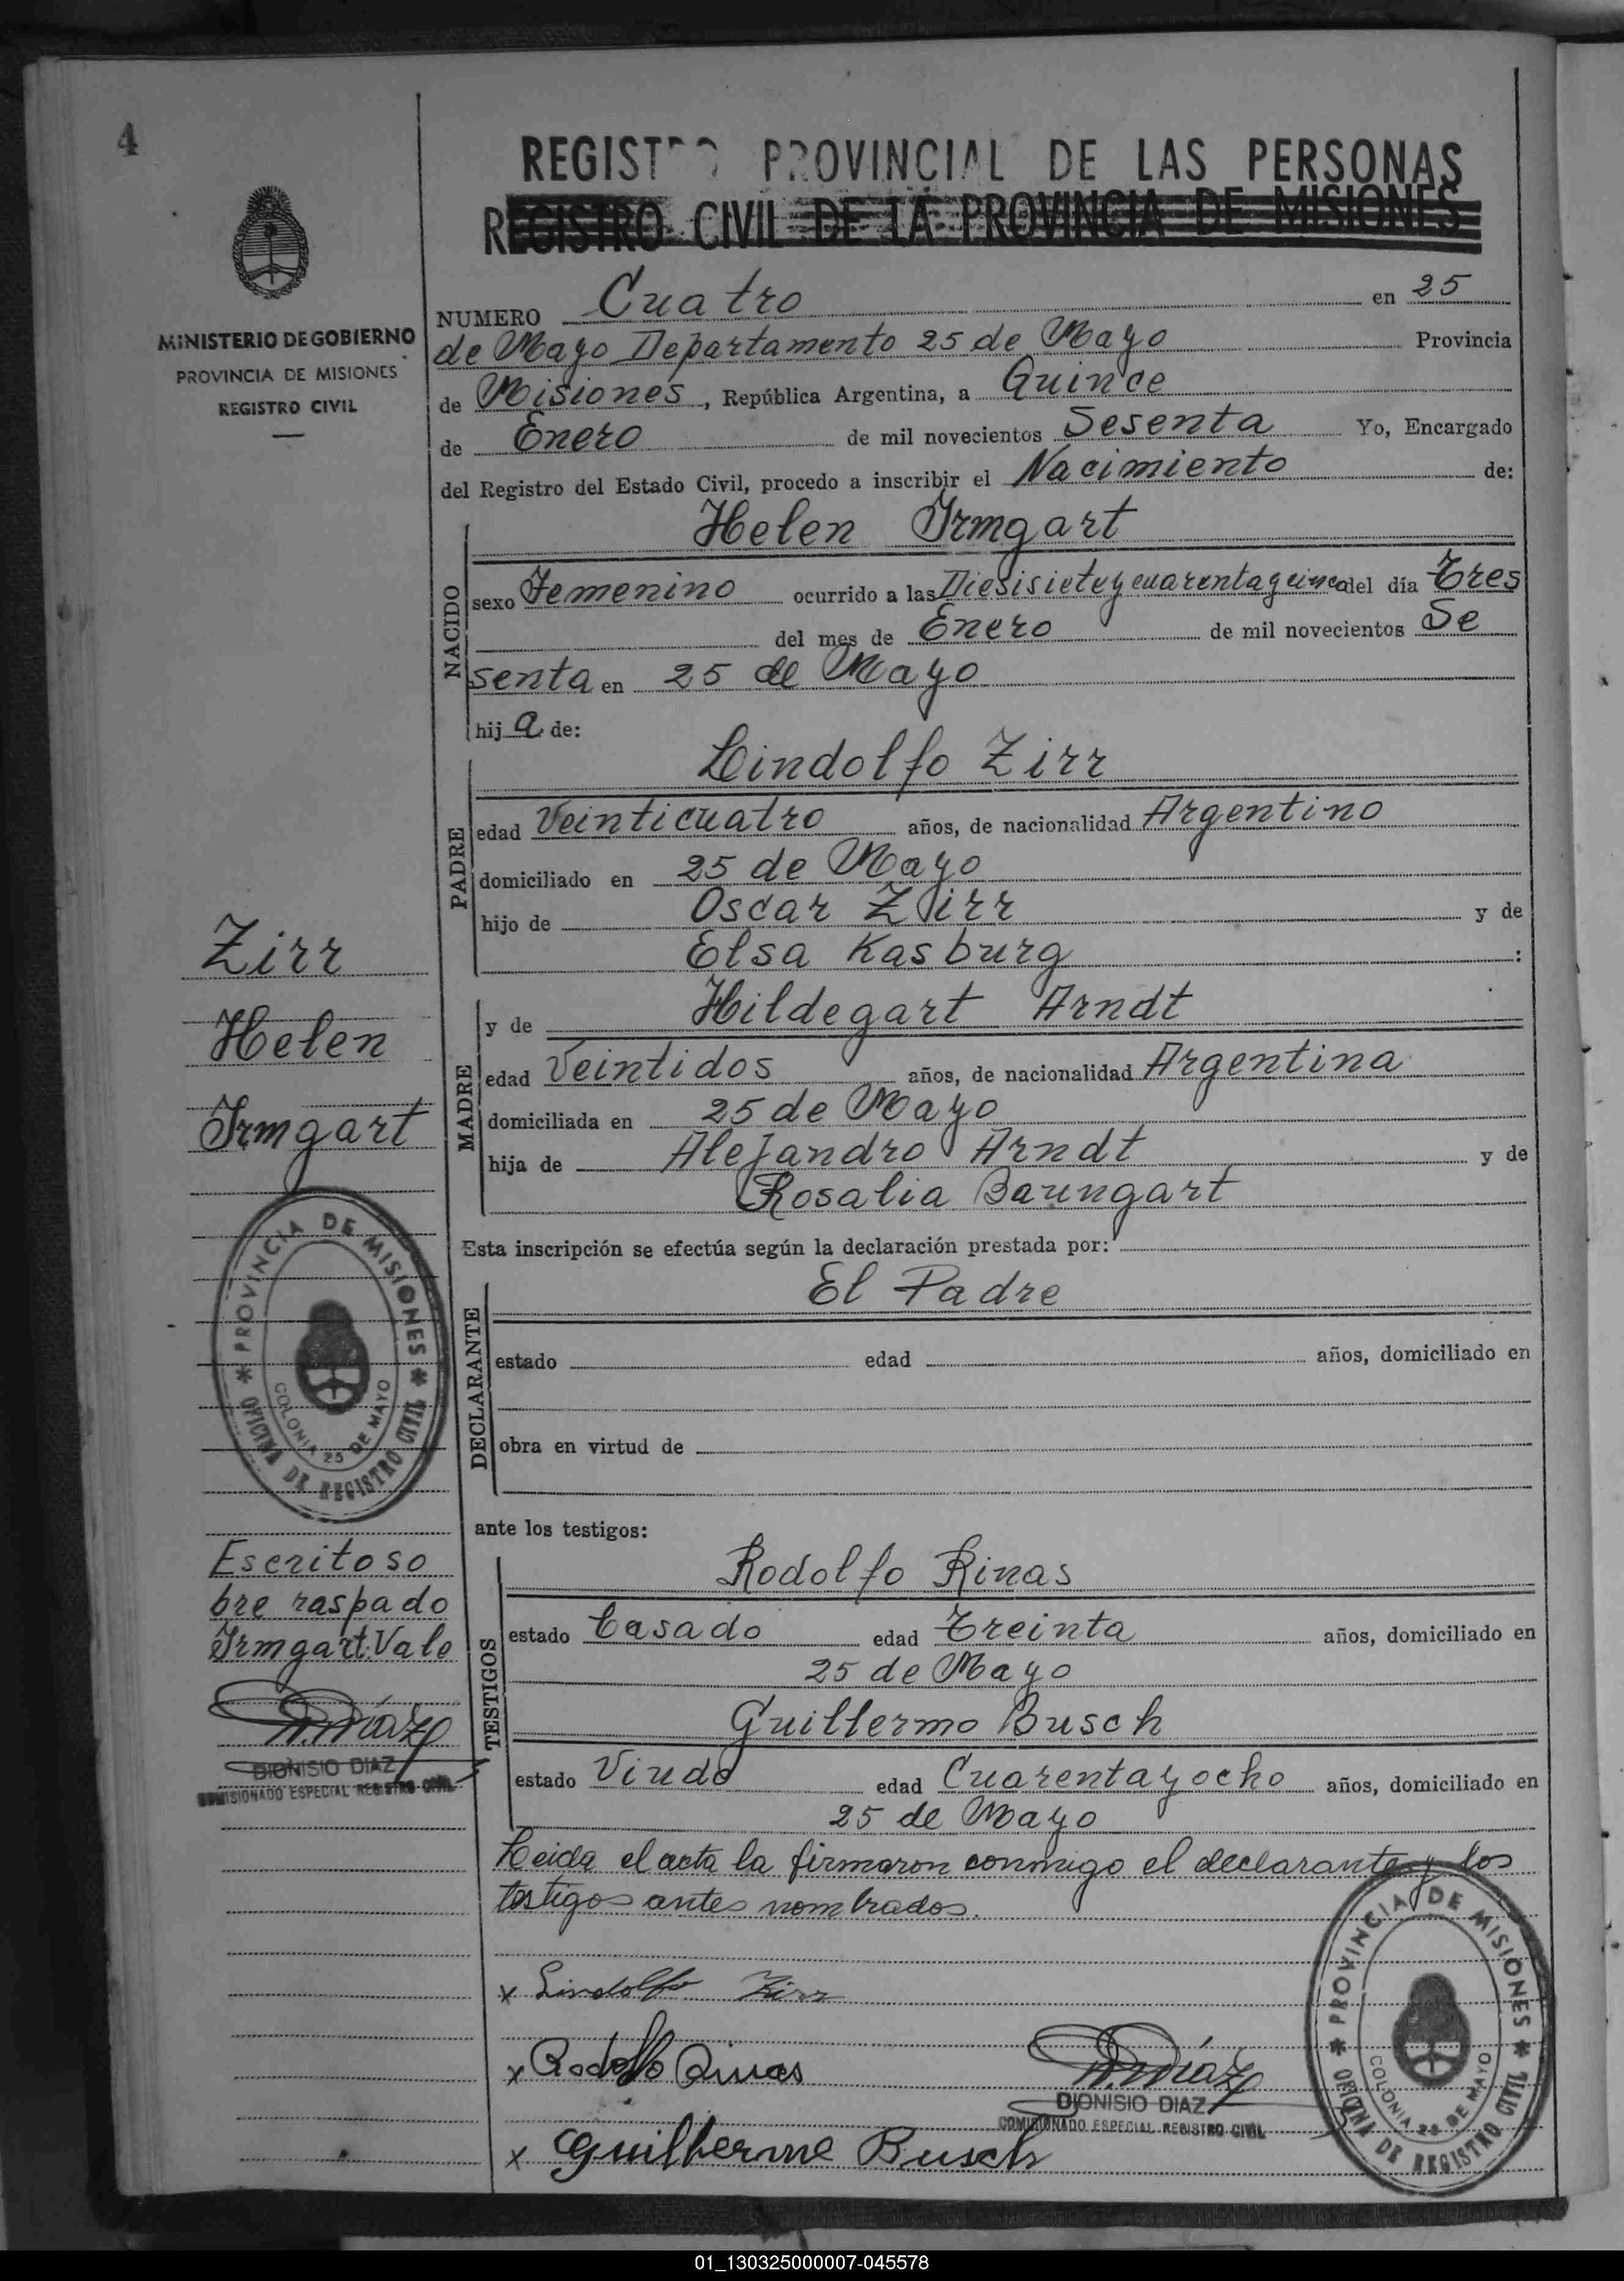 4
REGISTRO PROVINCIAL DE LAS PERSONAS
REGISTRO CIVIL DE LA PROVINCIA DE MISIONES
MINISTERIO DE GOBIERNO
PROVINCIA DE MISIONES
REGISTRO CIVIL
NUMERO Cuatro en 25
de Mayo Departamento 25 de Mayo Provincia
de Misiones, República Argentina, a Quince
de Enero de mil novecientos Sesenta Yo, Encargado
del Registro del Estado Civil, procedo a inscribir el Nacimiento de:
NACIDO
Helen Irmgart
sexo Femenino ocurrido a las Diesisiete y cuarenta y cinco del día Tres
del mes de Enero de mil novecientos Se
senta en 25 de Mayo
hij a de:
PADRE
Lindolfo Zirr
edad Veinticuatro años, de nacionalidad Argentino
domiciliado en 25 de Mayo
hijo de Oscar Zirr y de
Elsa Kasburg :
MADRE
y de Hildegart Arndt
edad Veintidos años, de nacionalidad Argentina
domiciliada en 25 de Mayo
hija de Alejandro Arndt y de
Rosalia Baungart
Esta inscripción se efectúa según la declaración prestada por:
DECLARANTE
El Padre
estado edad años, domiciliado en
obra en virtud de
ante los testigos:
TESTIGOS
Rodolfo Rinas
estado Casado edad Treinta años, domiciliado en
25 de Mayo
Guillermo Busch
estado Viudo edad Cuarenta y ocho años, domiciliado en
25 de Mayo
Leida el acta la firmaron conmigo el declarante y los
testigos antes nombrados.
x Lindolfo Zirr
x Rodolfo Rinas
x Guilherme Busch
D. Díaz
DIONISIO DIAZ
COMISIONADO ESPECIAL REGISTRO CIVIL
PROVINCIA DE MISIONES
OFICINA DE REGISTRO CIVIL
COLONIA 25 DE MAYO
Zirr
Helen
Irmgart
PROVINCIA DE MISIONES
OFICINA DE REGISTRO CIVIL
COLONIA 25 DE MAYO
Escrito so
bre raspado
Irmgart. Vale
D. Díaz
DIONISIO DIAZ
COMISIONADO ESPECIAL REGISTRO CIVIL
01_130325000007-045578